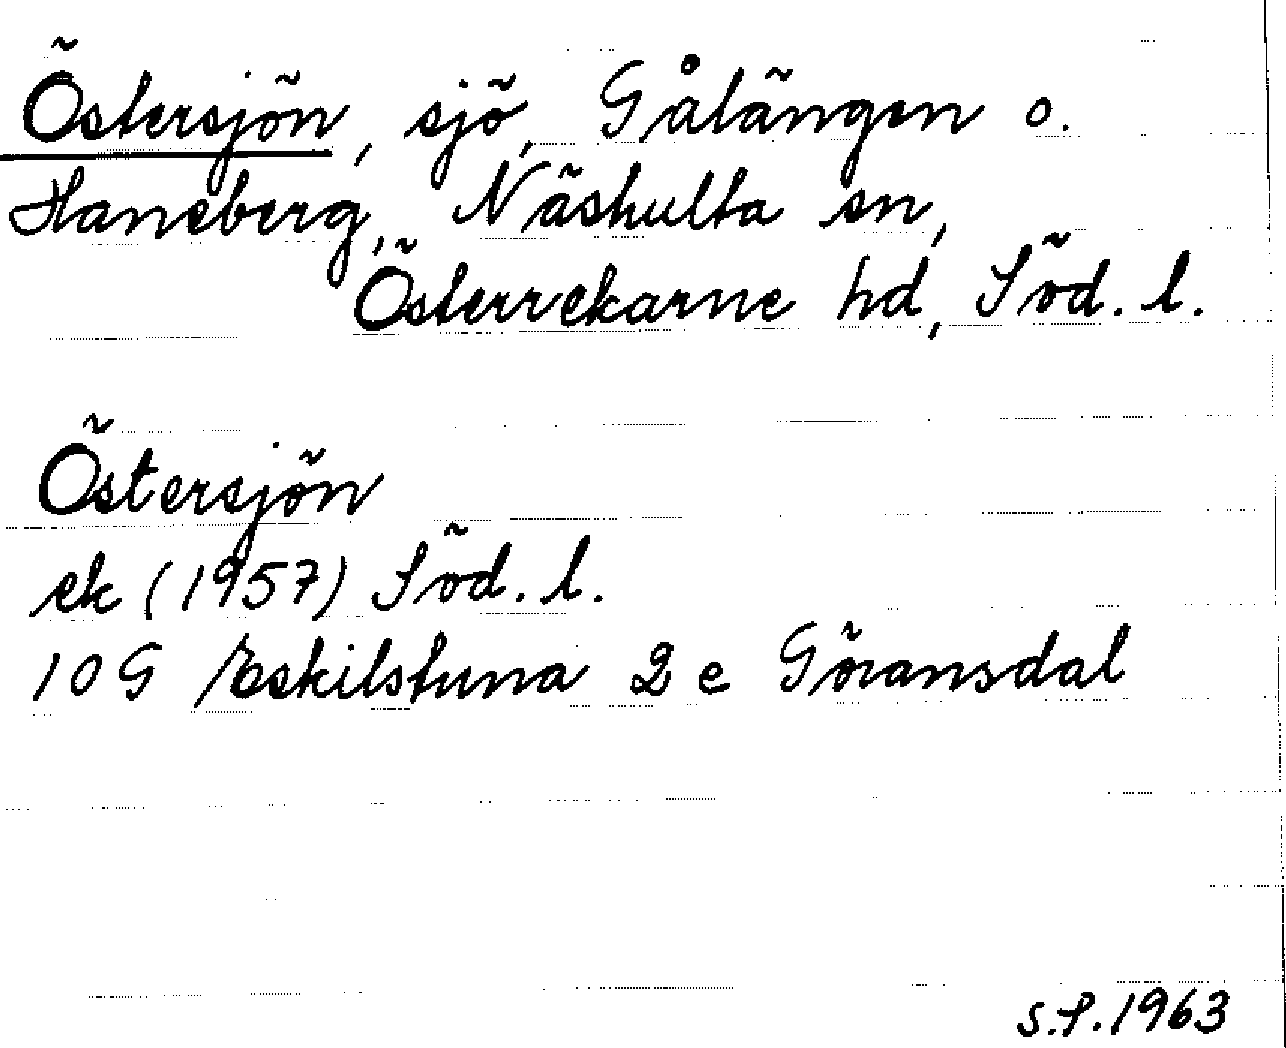 Östersjön, sjö, Gålängen o.
Haneberg, Näshulta sn,
Österrekarne hd, Söd. l.
Östersjön
ek (1957) Söd. l.
10G Eskilstuna 2 e Göransdal
S.P. 1963